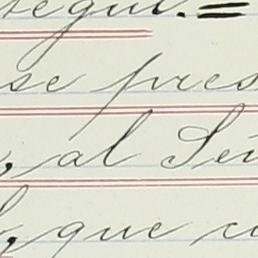 tegui.=
se pres
, al Señ
, que co